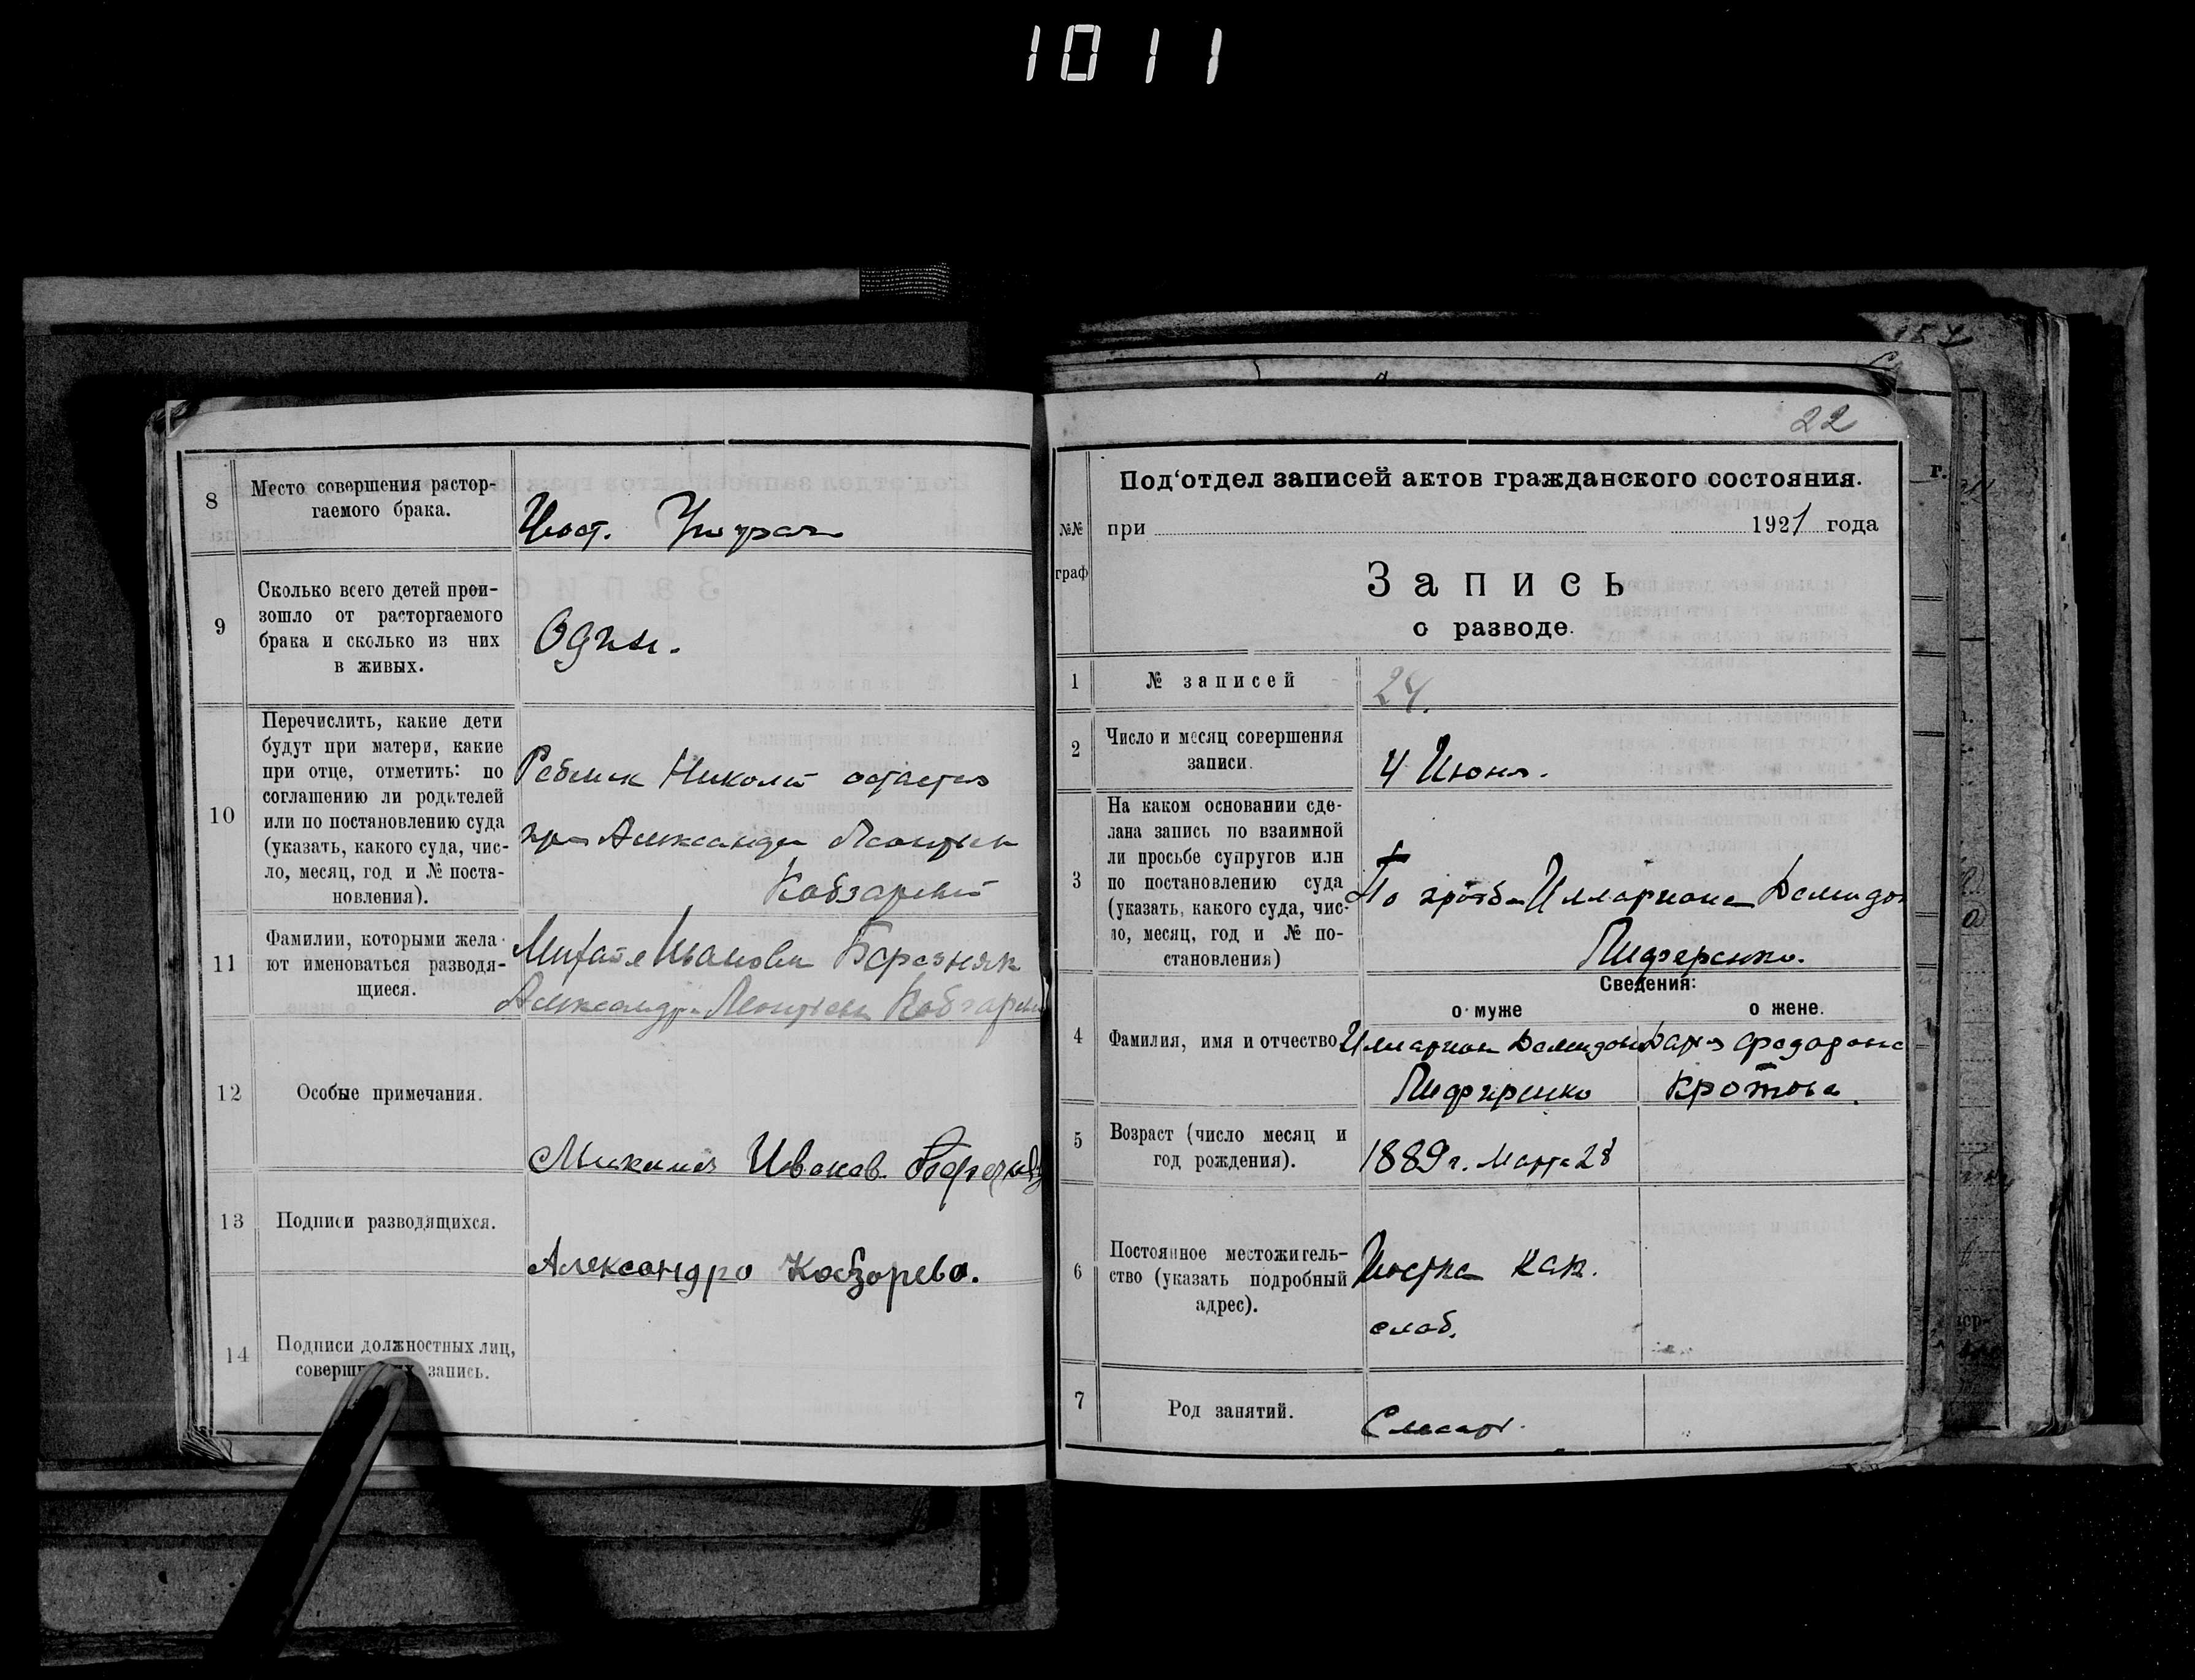 1011
8
Место совершения растор-
гаемого брака.
9
Сколько всего детей прои-
зошло от расторгаемого
брака и сколько из них
в живых.
Один.
10
Перечислить, какие дети
будут при матери, какие
при отце, отметить: по
соглашению ли родителей
или по постановлению суда
(указать, какого суда, чис-
ло, месяц, год и № поста-
новления).
Ребенок Николай остается
при Александре Леонтьев
Кобзаревой
11
Фамилии, которыми жела-
ют именоваться разводя-
щиеся.
Иванович Березняк
Александра Леонтьев
12
Особые примечания.
13
Подписи разводящихся.
Михаил Иванов
Александра Кобзарева.
14
Подписи должностных лиц,
запись.
22
Под‘отдел записей актов гражданского состояния.
№№
граф
при 1921 года
Запись
о разводе.
1
№ записей
24.
2
Число и месяц совершения
записи.
4 Июня.
3
На каком основании сде-
лана запись по взаимной
ли просьбе супругов или
по постановлению суда
(указать, какого суда, чис-
ло, месяц, год и № по-
становления)
По просьбе Иллариона Демидов
Лиференко.
Сведения:
о муже
о жене.
4
Фамилия, имя и отчество
Илларион Демидов
Лиференко
Дарья Федоровна
Кротова.
5
Возраст (число месяц и
год рождения).
1889 г. Марта 28
6
Постоянное местожитель-
ство (указать подробный
адрес).
слоб.
7
Род занятий.
Слесарь.